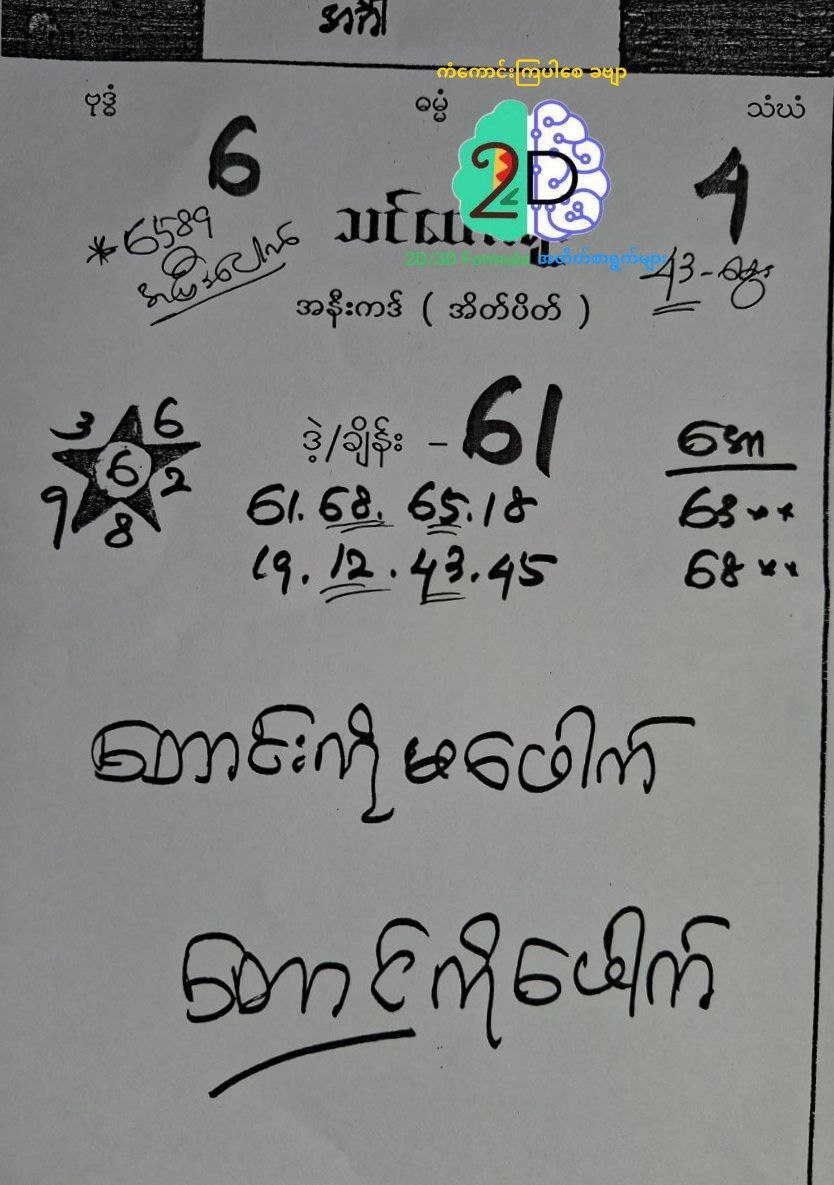 အင်္ဂါ
ကံကောင်းကြပါစေ ခဗျာ
ဗုဒ္ဓံ ဓမ္မံ သံဃံ
6 2D 4
*6589
သင်
2D/3D Formula အတိတ်စာရွက်များ
43 - ခွေး
အနီးကဒ် ( အိတ်ပိတ် )
3 6 6 9 2 8
ဒဲ့/ချိန်း - 61
61. 68. 65. 18
19. 12. 43. 45
အော
63**
68**
တောင်းကို မဖေါက်
တောင်ကိုဖေါက်